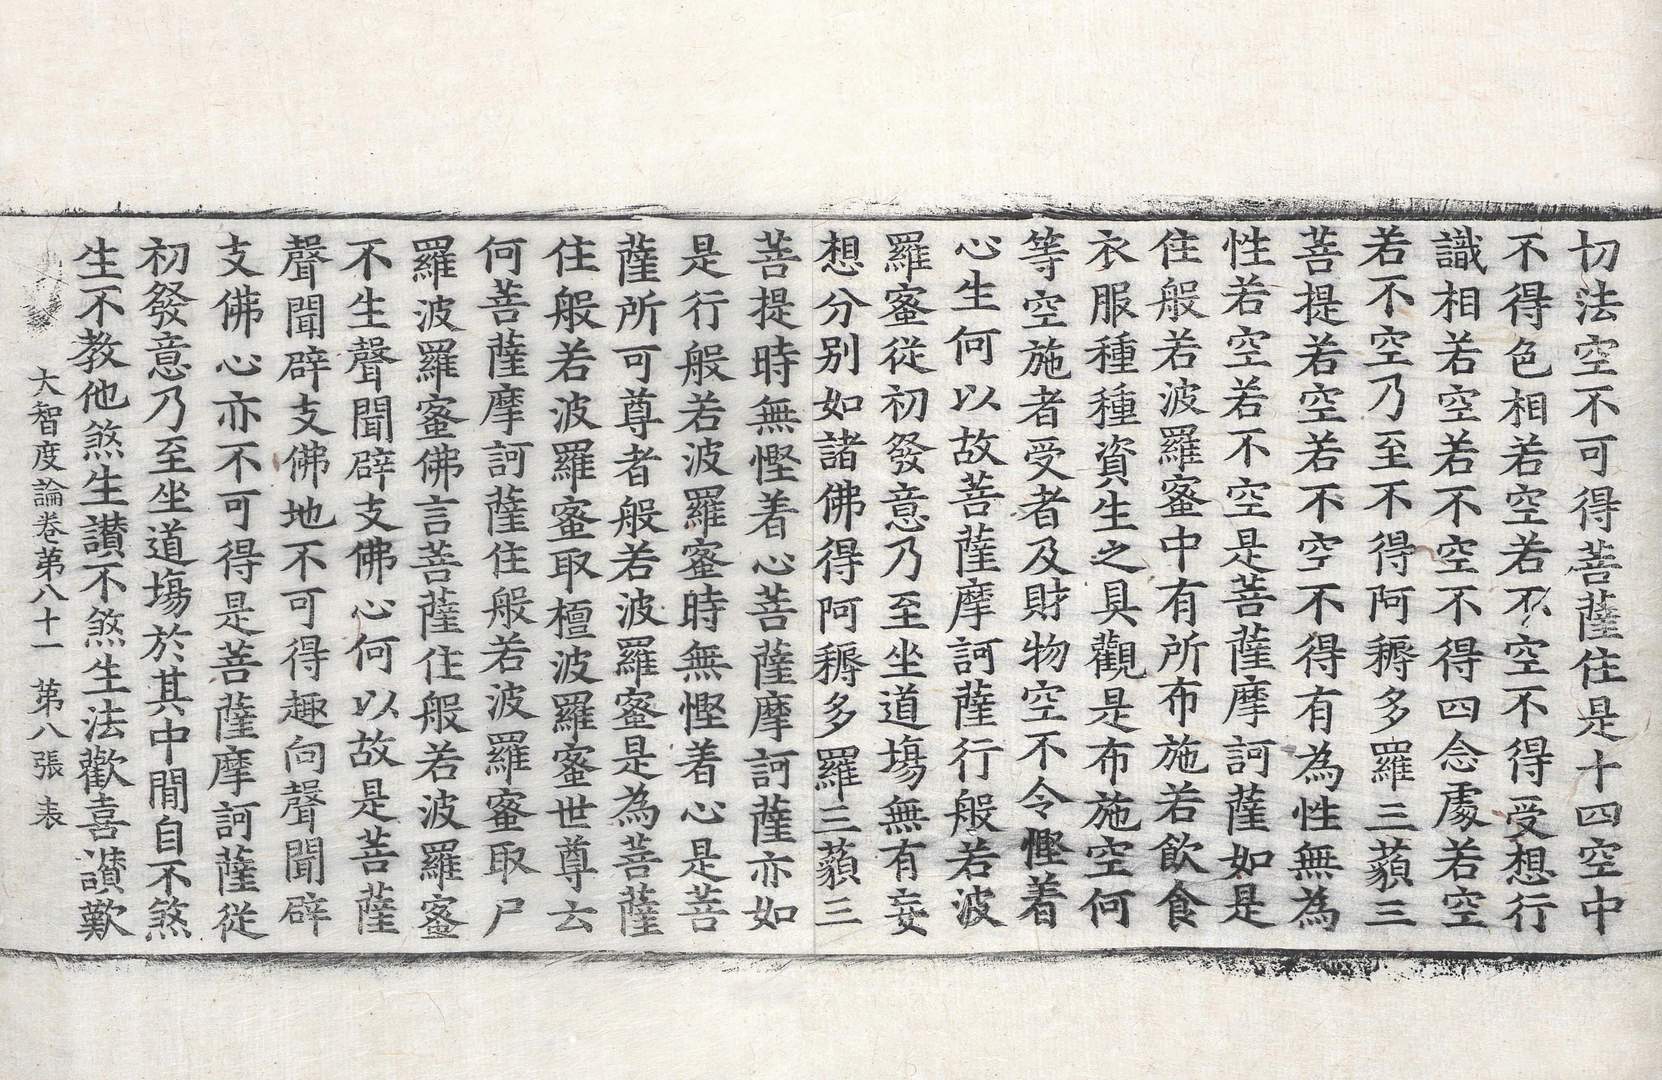 切法空不可得菩薩住是十四空中
不得色相若空若不空不得受想行
識相若空若不空不得四念處若空
若不空乃至不得阿耨多羅三藐三
菩提若空若不空不得有為性無為
性若空若不空是菩薩摩訶薩如是
住般若波羅蜜中有所布施若飲食
衣服種種資生之具觀是布施空何
等空施者受者及財物空不令慳着
心生何以故菩薩摩訶薩行般若波
羅蜜從初發意乃至坐道場無有妄
想分別如諸佛得阿耨多羅三藐三
菩提時無慳着心菩薩摩訶薩亦如
是行般若波羅蜜時無慳着心是菩
薩所可尊者般若波羅蜜是為菩薩
住般若波羅蜜取檀波羅蜜世尊云
何菩薩摩訶薩住般若波羅蜜取尸
羅波羅蜜佛言菩薩住般若波羅蜜
不生聲聞辟支佛心何以故是菩薩
聲聞辟支佛地不可得趣向聲聞辟
支佛心亦不可得是菩薩摩訶薩從
初發意乃至坐道場於其中間自不煞
生不教他煞生讃不煞生法歡喜讃歎
大智度論卷第八十一 第八張 表